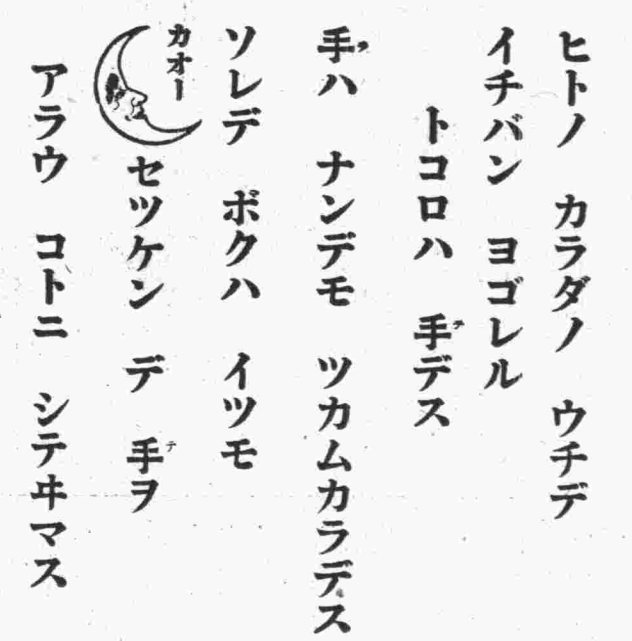 ヒトノ カラダノ ウチデ
イチバン ヨゴレル
トコロハ 手デス
手ハ ナンデモ ツカムカラデス
ソレデ ボクハ イツモ
カオー
セツケン デ 手ヲ
アラウ コトニ シテヰマス